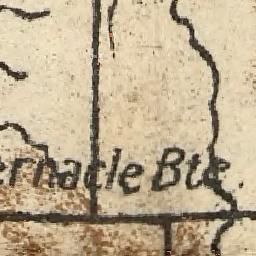 ernacle Bte.